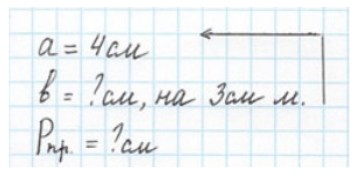 a = 4см
в = ?см, на 3см м.
Pпр. = ?см